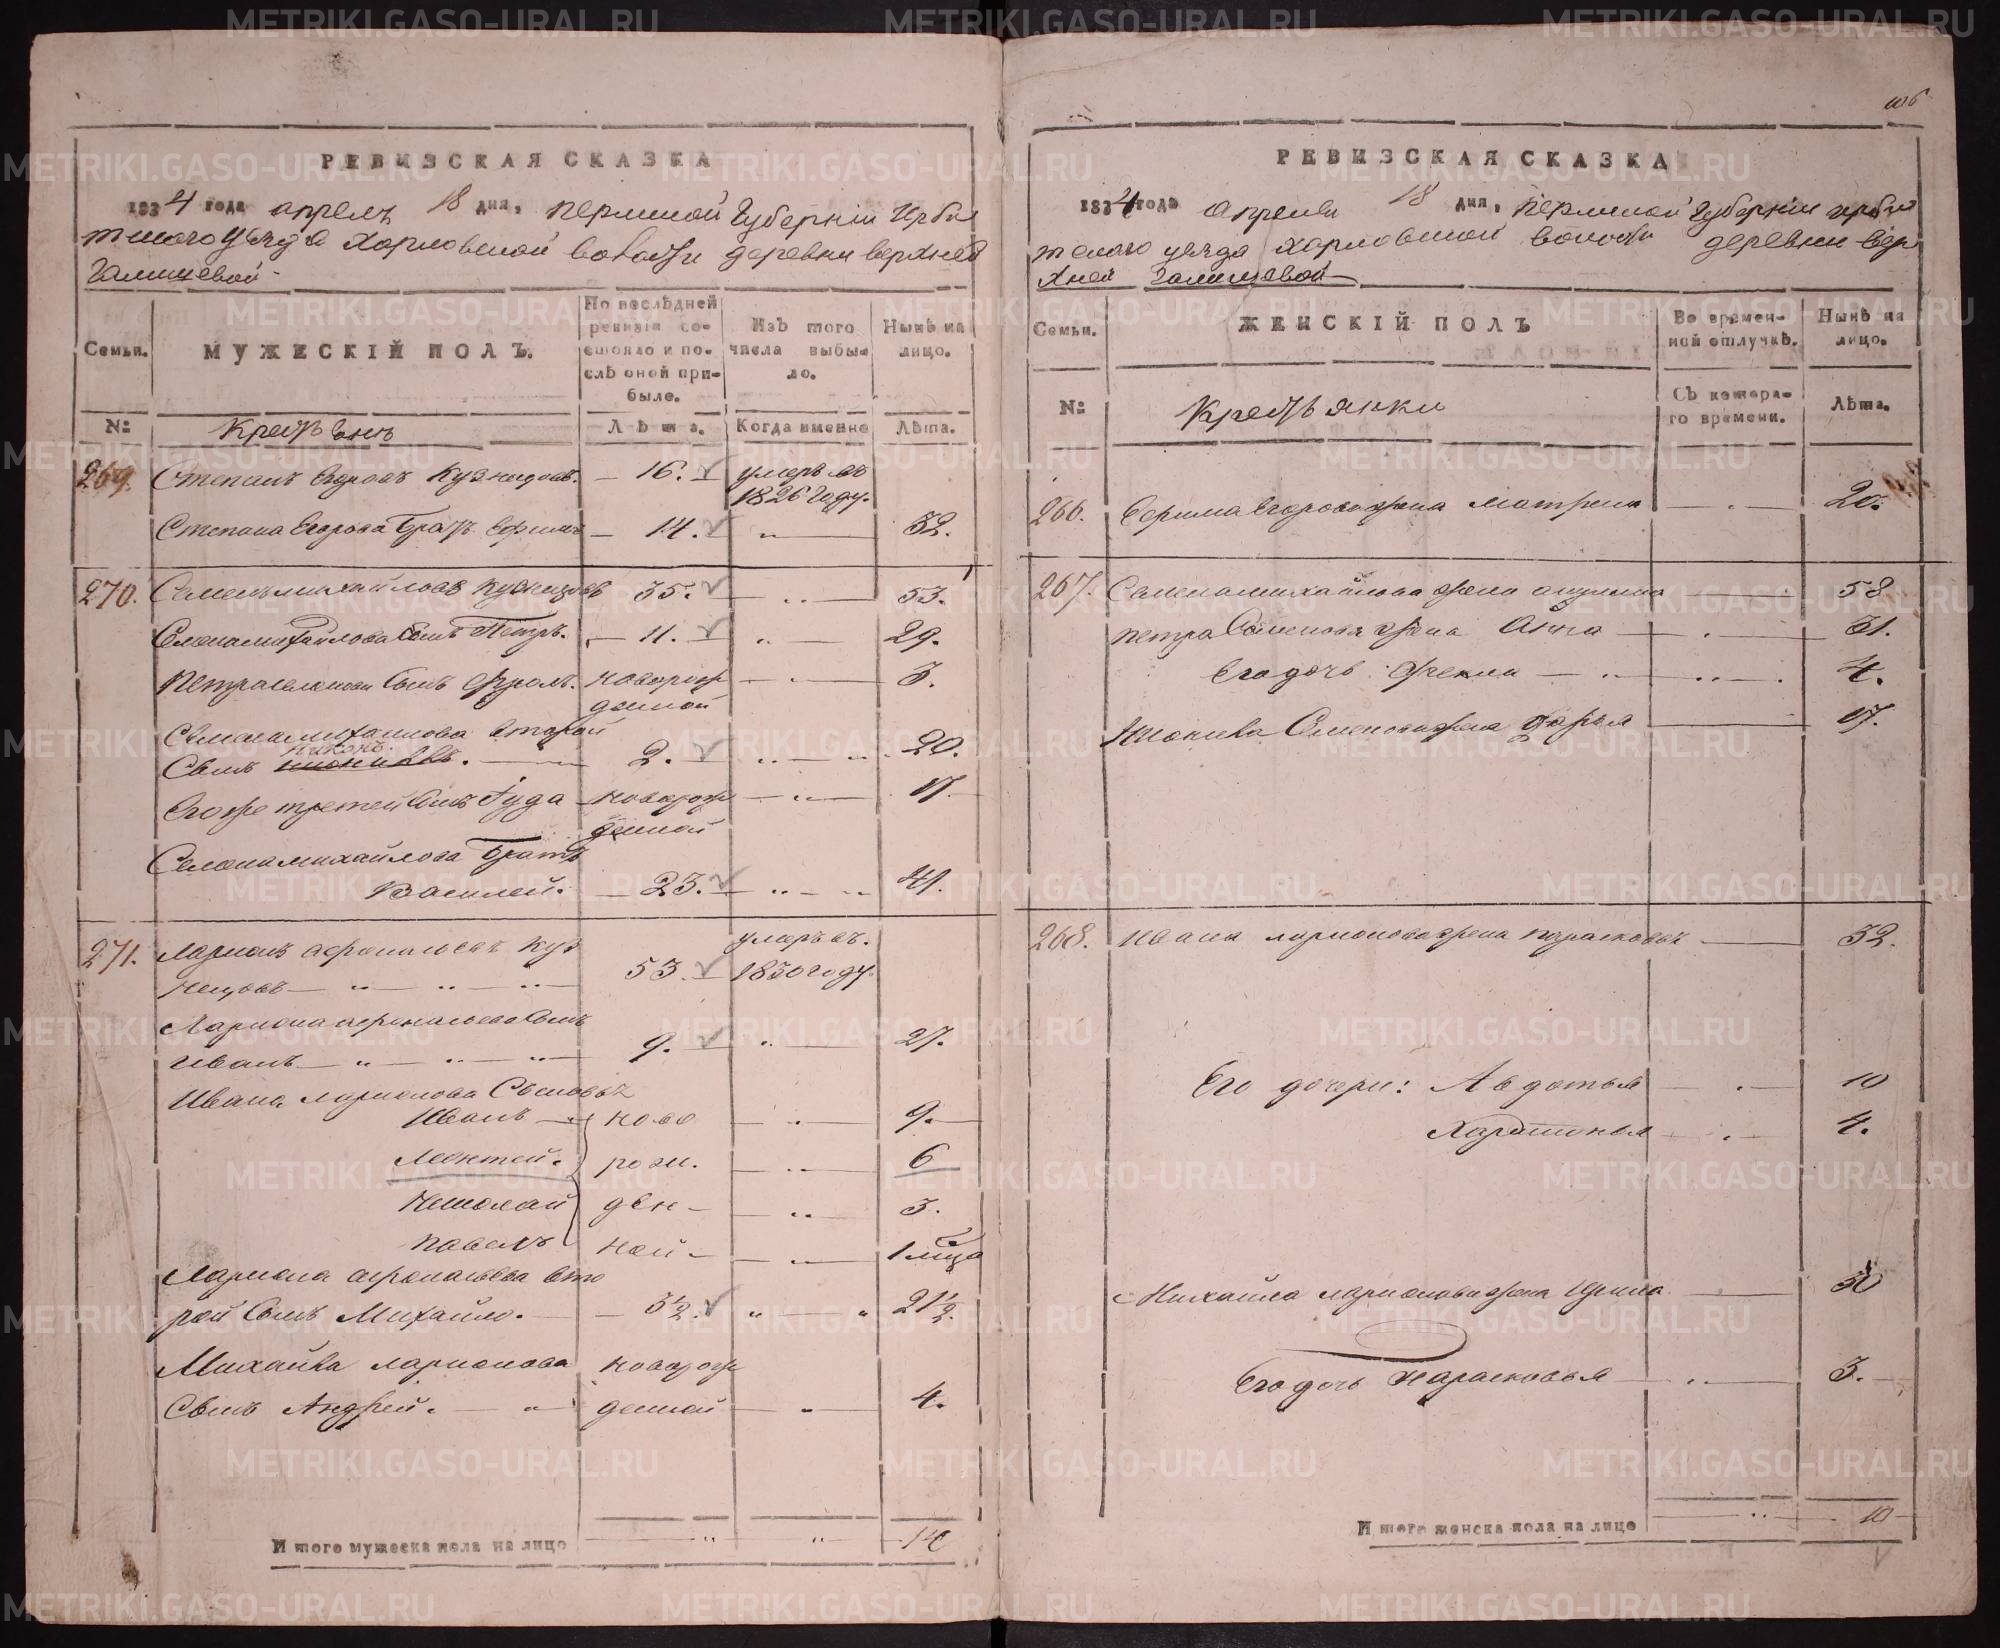 РЕВИЗСКАЯ СКАЗКА
1834 года апрель 18 дня, Пермской Губернiи Ирби
тского уезда Харловской волости деревни верхней
Галишевой
Семьи.
МУЖЕСКIЙ ПОЛЪ.
По послѣдней ревизiи состояло и послѣ оной прибыло.
Изъ того числа выбыло.
Нынѣ на лицо.
№
Крестьянъ
Лѣта.
Когда именно
Лѣта.
269. Степанъ Егоровъ Кузнецовъ. — 16. умеръ въ 1826 году.
Степана Егорова братъ Ефимъ — 14. „ — 32.
270. Семенъ михайловъ Кузнецовъ 35. — „ — 53.
Семена михайлова сынъ Петръ. — 11. „ 29.
Петра семенова сынъ Фролъ. новорож
денной — „ — 3.
Семена михайлова второй
сынъ никонъ. — 2. — „ — „ 20.
Егоже третей сынъ Iуда — новорож
денной — „ — 17.
Семена михайлова братъ
Василей. — 23. — „ — 41.
271. Ларионъ афонасьевъ Куз
нецовъ — „ — „ — „ 53. умеръ въ.
1830 году.
Лариона афонасьева сынъ
иванъ — „ — „ — „ 9. — „ — 27.
Ивана ларионова сыновья
Иванъ — ново — „ — 9.
Леонтей. рож. — „ — 6
Николай ден — „ — 3.
павелъ ной — „ — 1 м-ца
Лариона афонасьева вто
рой сынъ Михайло. — 3½. „ — „ 21½.
Михайла ларионова новорож
сынъ Андрей. — „ денной — „ — 4.
Итого мужеска пола на лицо — „ „ 14
106
РЕВИЗСКАЯ СКАЗКА
1834 года апреля 18 дня, Пермской Губернiи ирби
тского уезда харловской волости деревни вер
хней Галишевой
Семьи.
ЖЕНСКIЙ ПОЛЪ
Во временной отлучкѣ.
Нынѣ на лицо.
№
Крестьянки
Съ котораго времени.
Лѣта.
266. Ефима Егорова жена матрена — „ — 20.
267. Семена михайлова жена акулина — 58
петра Семенова жена Анна — „ — 31.
Его дочь Фекла — „ — „ . 4.
Никона Семенова жена Дарья — 17.
268. Ивана ларионова жена парасковья — 32.
Его дочери: Авдотья — „ — 10
Харитонья — „ — 4.
Михайла ларионова жена Ирина — 30
Его дочь Парасковья — „ — 3.
Итого женска пола на лицо — „ 10
METRIKI.GASO-URAL.RU